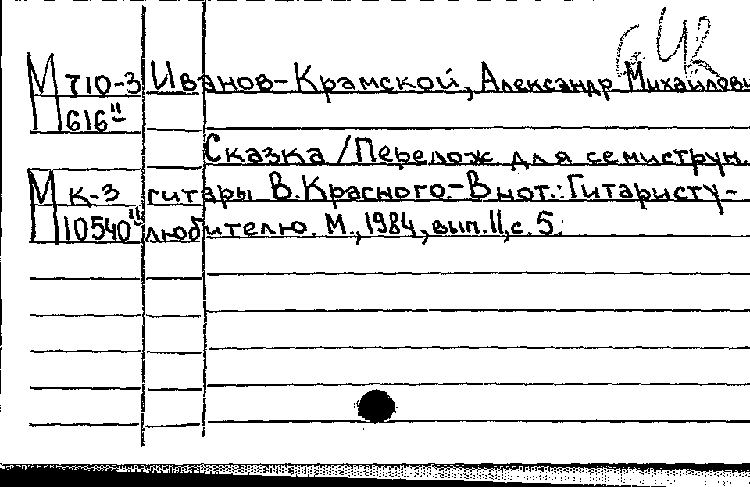 М 710-3 Иванов-Крамской, Александр Михайлови
616"
Сказка /Перелож. для семиструн.
М К-3 гитары В.Красного.-В нот.: Гитаристу-
10540" любителю. М., 1984, вып.11, с. 5.